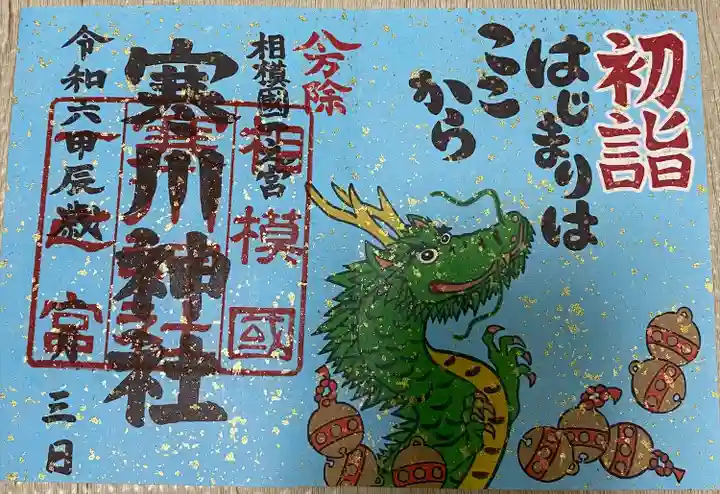 初詣
はじまりは
ここ
から
八方除
相模國一之宮
寒川神社
令和六甲辰歳
三日
相模國